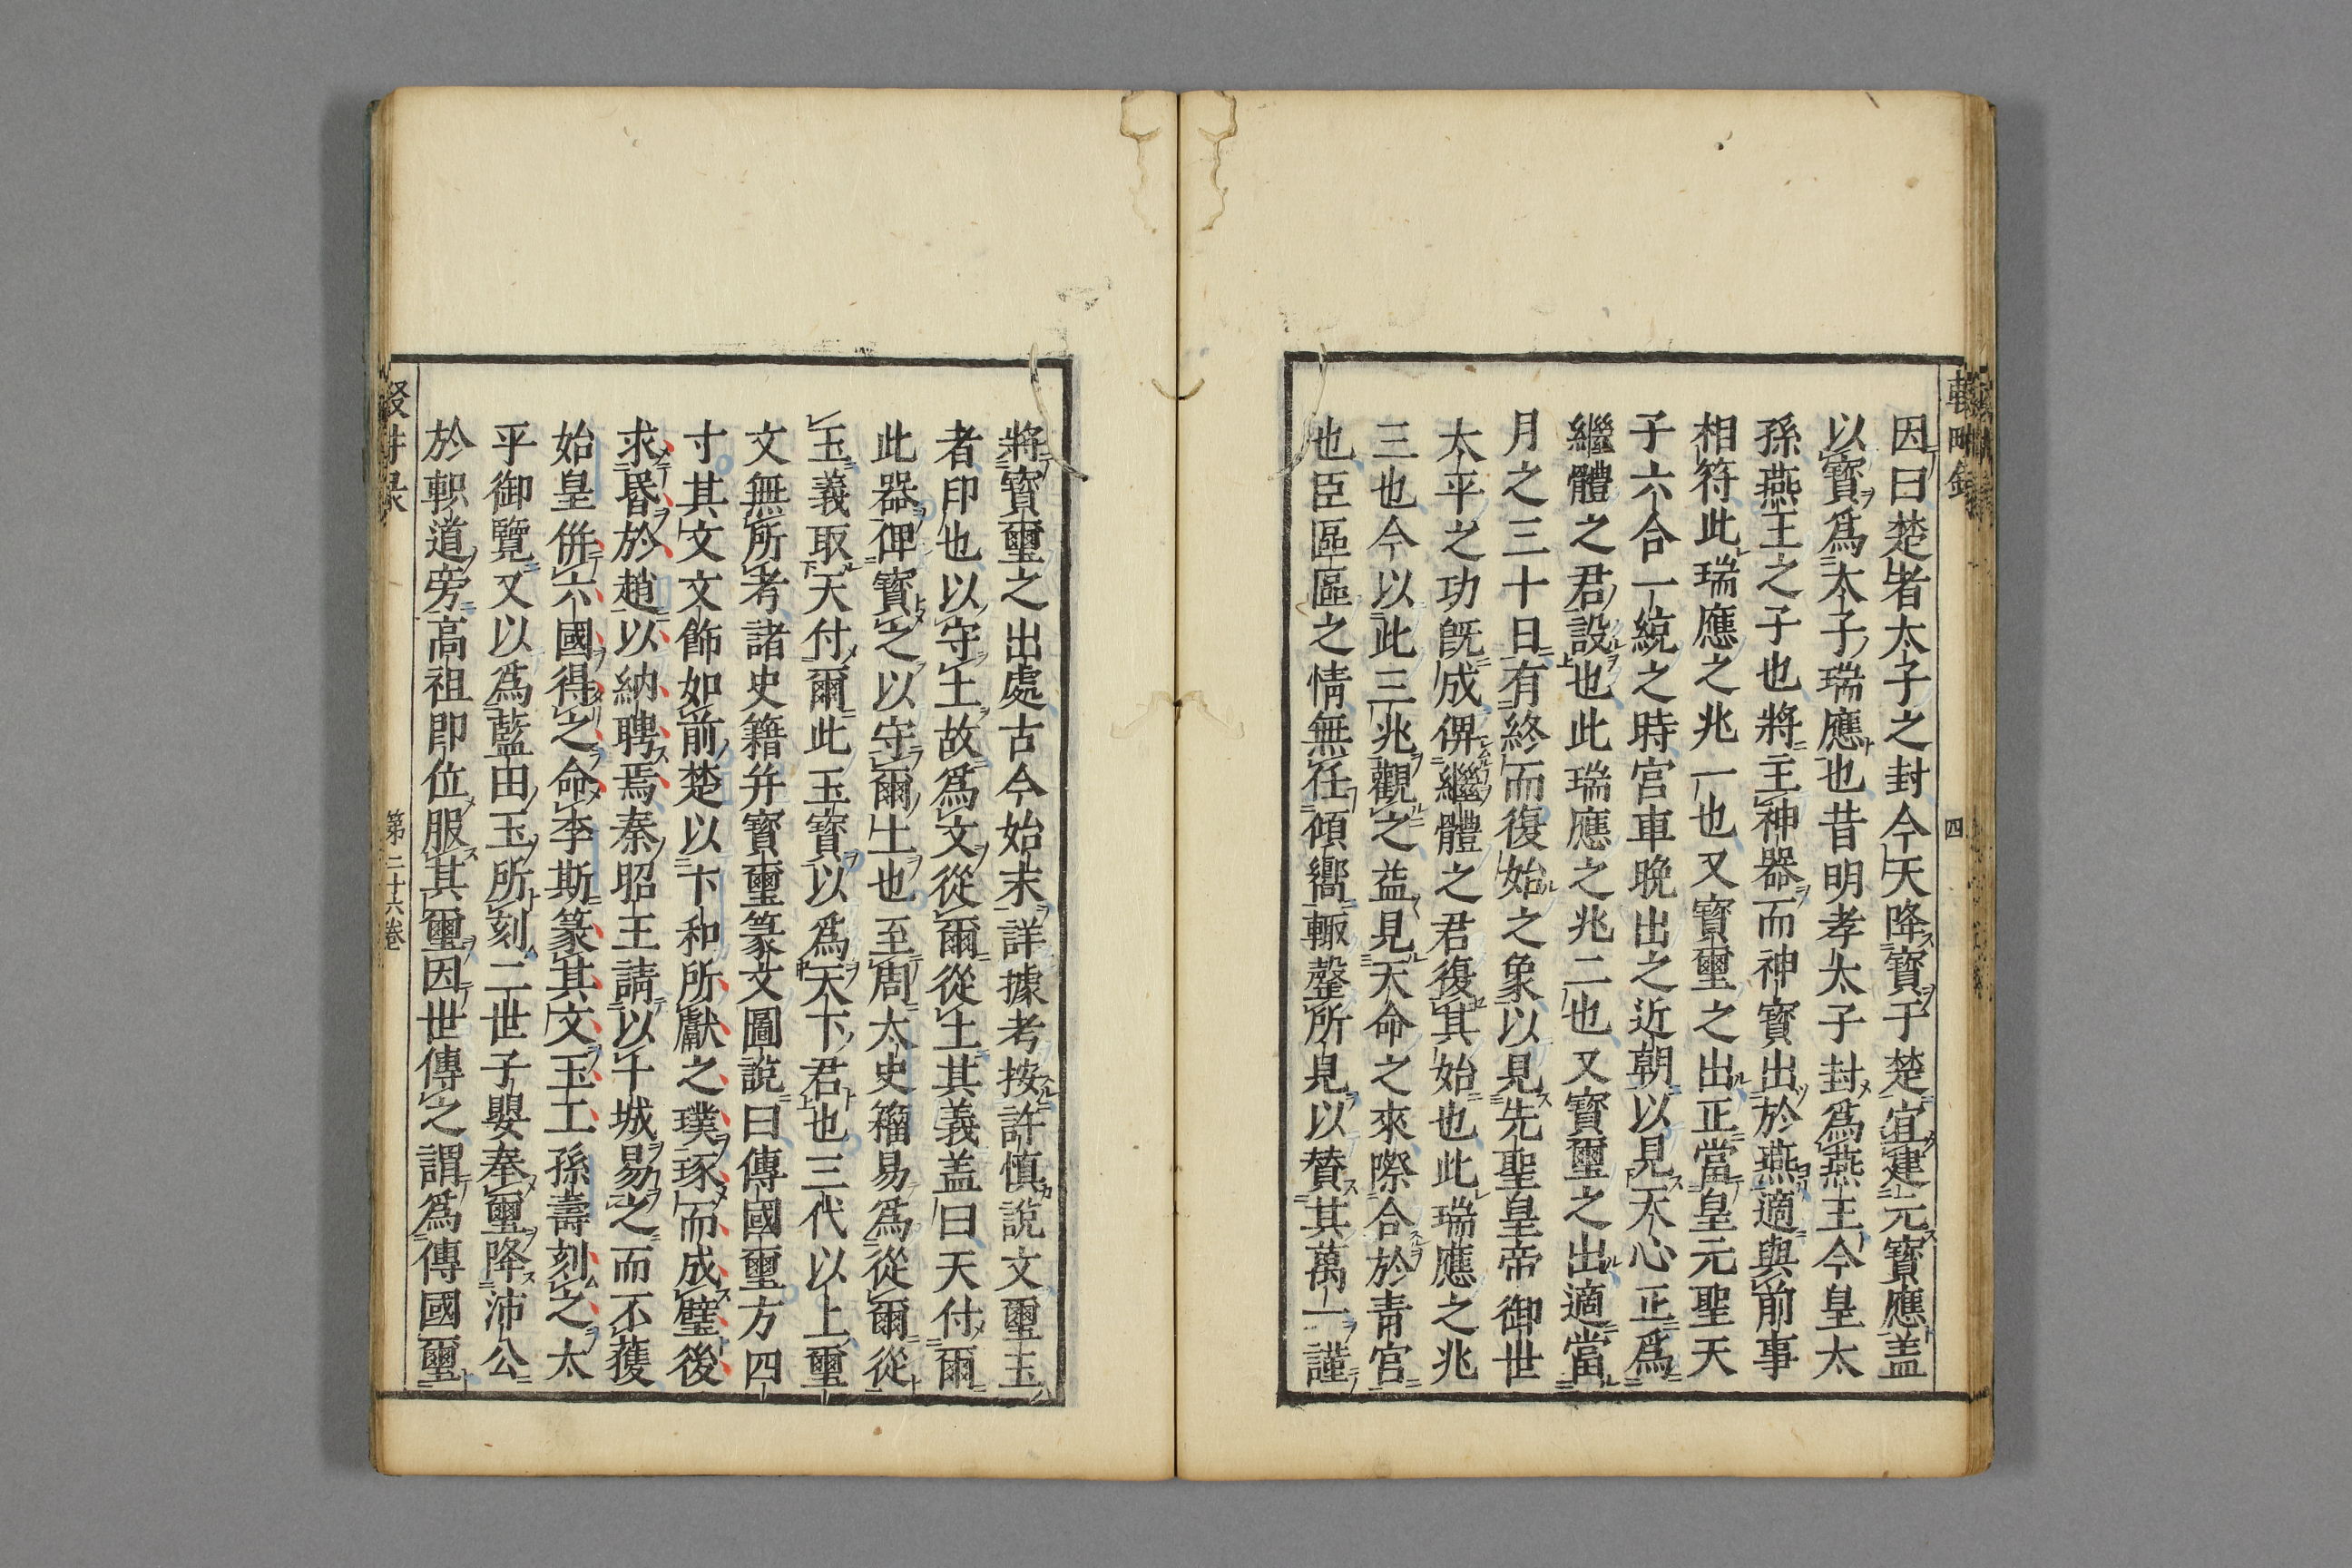 因曰楚者太子之封今天降寳于楚宜建元寳應盖
以寳爲太子瑞應也昔明孝太子封爲燕王今皇太
孫燕王之子也將主神器而神寳出於燕適與前事
相符此瑞應之兆一也又寳璽之出正當皇元聖天
子六合一統之時宮車晩出之近朝以見天心正爲
繼體之君設也此瑞應之兆二也又寳璽之出適當
月之三十日有終而復始之象以見先聖皇帝御世
太平之功旣成俾繼體之君復其始也此瑞應之兆
三也今以此三兆觀之益見天命之來際合於青宮
也臣區區之情無任傾嚮輙罄所見以賛其萬一謹
將寳璽之出處古今始末詳據考按許慎說文璽玉
者印也以守土故爲文從爾從土其義盖曰天付爾
此器俾寳之以守爾土也至周太史籀易爲從爾從
玉義取天付爾此玉寳以爲天下君也三代以上璽
文無所考諸史籍幷寳璽篆文圖說曰傳國璽方四
寸其文文飾如前楚以卞和所獻之璞琢而成璧後
求昏於趙以納聘焉秦昭王請以千城易之而不獲
始皇倂六國得之命李斯篆其文玉工孫壽刻之太
平御覽又以爲藍田玉所刻二世子嬰奉璽降沛公
於軹道旁高祖即位服其璽因世傳之謂爲傳國璽
四
第二十六卷